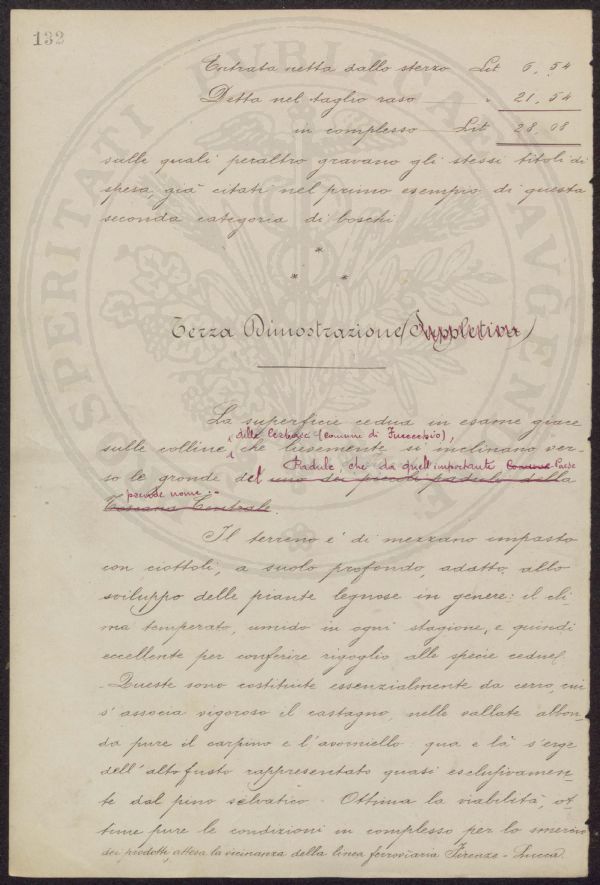 132
Entrata netta dallo sterzo Lit 6,54
Detta nel taglio raso " 21,54
in complesso Lit 28,08
sulle quali peraltro gravano gli stessi titoli di
spesa, già citati nel primo esempio di questa
seconda categoria di boschi.
*
* *
Terza Dimostrazione (Suppletiva)
La superficie cedua in esame giace
delle Cerbaie (Comune di Fucecchio),
sulle colline che lievemente si inclinano ver-
Padule, che da quell'importante Comune Paese
so le gronde del uno dei piccoli paduli della
prende nome.
Toscana Centrale.
Il terreno è di mezzano impasto
con ciottoli, a suolo profondo, adatto allo
sviluppo delle piante legnose in genere: il cli-
ma temperato, umido in ogni stagione, e quindi
eccellente per conferire rigoglio alle specie cedue.
- Queste sono costituite essenzialmente da cerro, cui
s'associa vigoroso il castagno, nelle vallate abbon-
da pure il carpino e l'avorniello: qua e là s'erge
dell'alto fusto rappresentato quasi esclusivamen-
te dal pino selvatico. Ottima la viabilità, ot-
time pure le condizioni in complesso per lo smercio
dei prodotti, attesa la vicinanza della linea ferroviaria Firenze-Lucca.